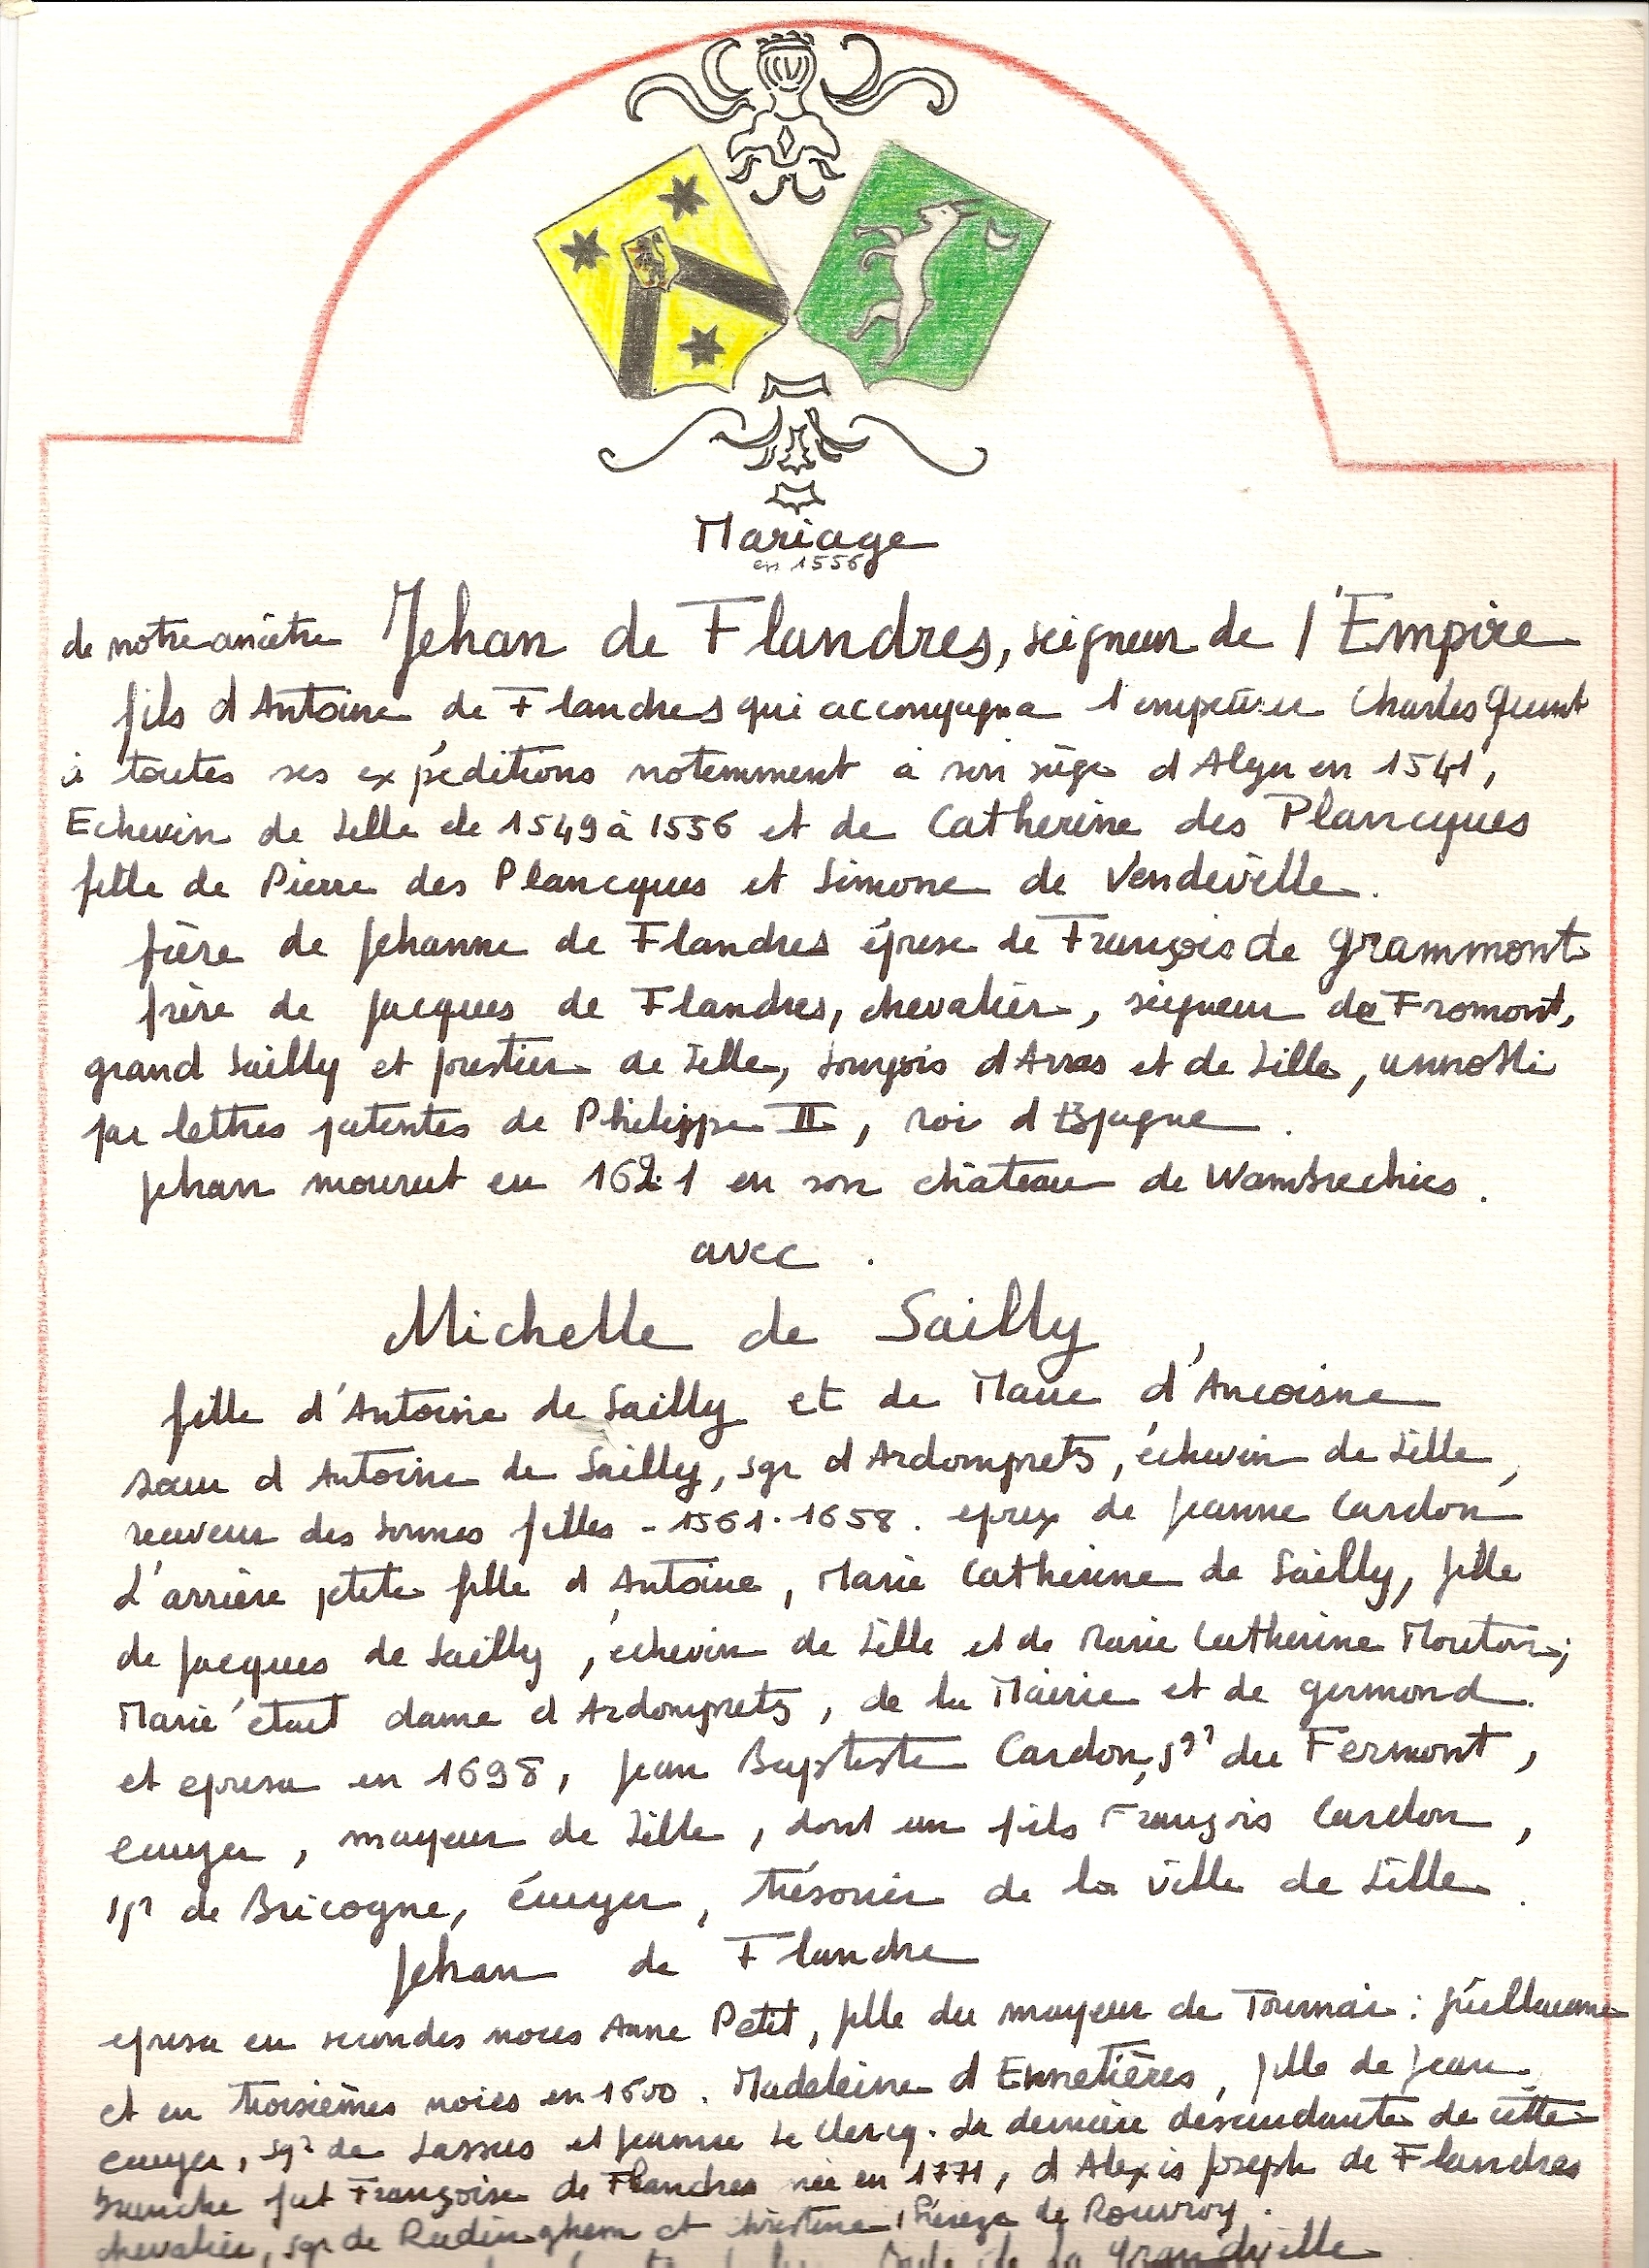 Mariage
en 1556
de notre ancêtre Jehan de Flandres, seigneur de l'Empire
fils d Antoine de Flandres qui accompagna l empereur Charles Quint
à toutes ses expéditions notemment à son siège d Alger en 1541,
Echevin de Lille de 1549 à 1556 et de Catherine des Plancques
fille de Pierre des Plancques et Simone de Vendeville.
frère de Jehanne de Flandres épouse de François de Grammont
frère de Jacques de Flandres, chevalier, seigneur de Fromont,
grand Sailly et forestier de Lille, bourgois d Arras et de Lille, annobli
par lettres patentes de Philippe II, roi d Espagne.
Jehan mourut en 1621 en son château de Wambrechies.
avec.
Michelle de Sailly,
fille d'Antoine de Sailly et de Marie d'Ancoisne
soeur d Antoine de Sailly, sgr d Ardomprets, échevin de Lille,
receveur des bonnes filles - 1561.1658. epoux de Jeanne Cardon
L'arrière petite fille d Antoine, Marie Catherine de Sailly, fille
de Jacques de Sailly, échevin de Lille et de Marie Catherine
Marie était dame d Ardomprets, de la Mairie et de germond.
et epousa en 1698, Jean Baptiste Cardon, sgr du Fermont,
ecuyer, mayeur de Lille, dont un fils François Cardon,
sgr de Bricogne, écuyer, trésorier de la ville de Lille.
Jehan de Flandre
epousa en secondes noces Anne Petit, fille du mayeur de Tournai: Guillaume
et en troisièmes noces en 1600. Madeleine d Ennetières, fille de Jean
ecuyer, sgr de Lassus et Jeanne Le Clercq. La dernière descendante de cette
branche fut Françoise de Flandres née en 1771, d Alexis Joseph de Flandres
chevalier, sgr de Radinghem et Christine Thérèse de Rouvroy.
de la Grandville